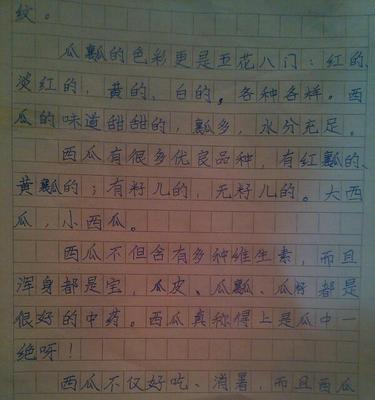 纹。
瓜瓤的色彩更是五花八门：红的、
淡红的，黄的、白的，各种各样。西
瓜的味道甜甜的，瓤多，水分充足。
西瓜有很多优良品种，有红瓤的、
黄瓤的；有籽儿的，无籽儿的。大西
瓜，小西瓜。
西瓜不但含有多种维生素，而且
浑身都是宝，瓜皮、瓜瓤、瓜籽都是
很好的中药。西瓜真称得上是瓜中一
绝呀！
西瓜不仅好吃、消暑，而且西瓜